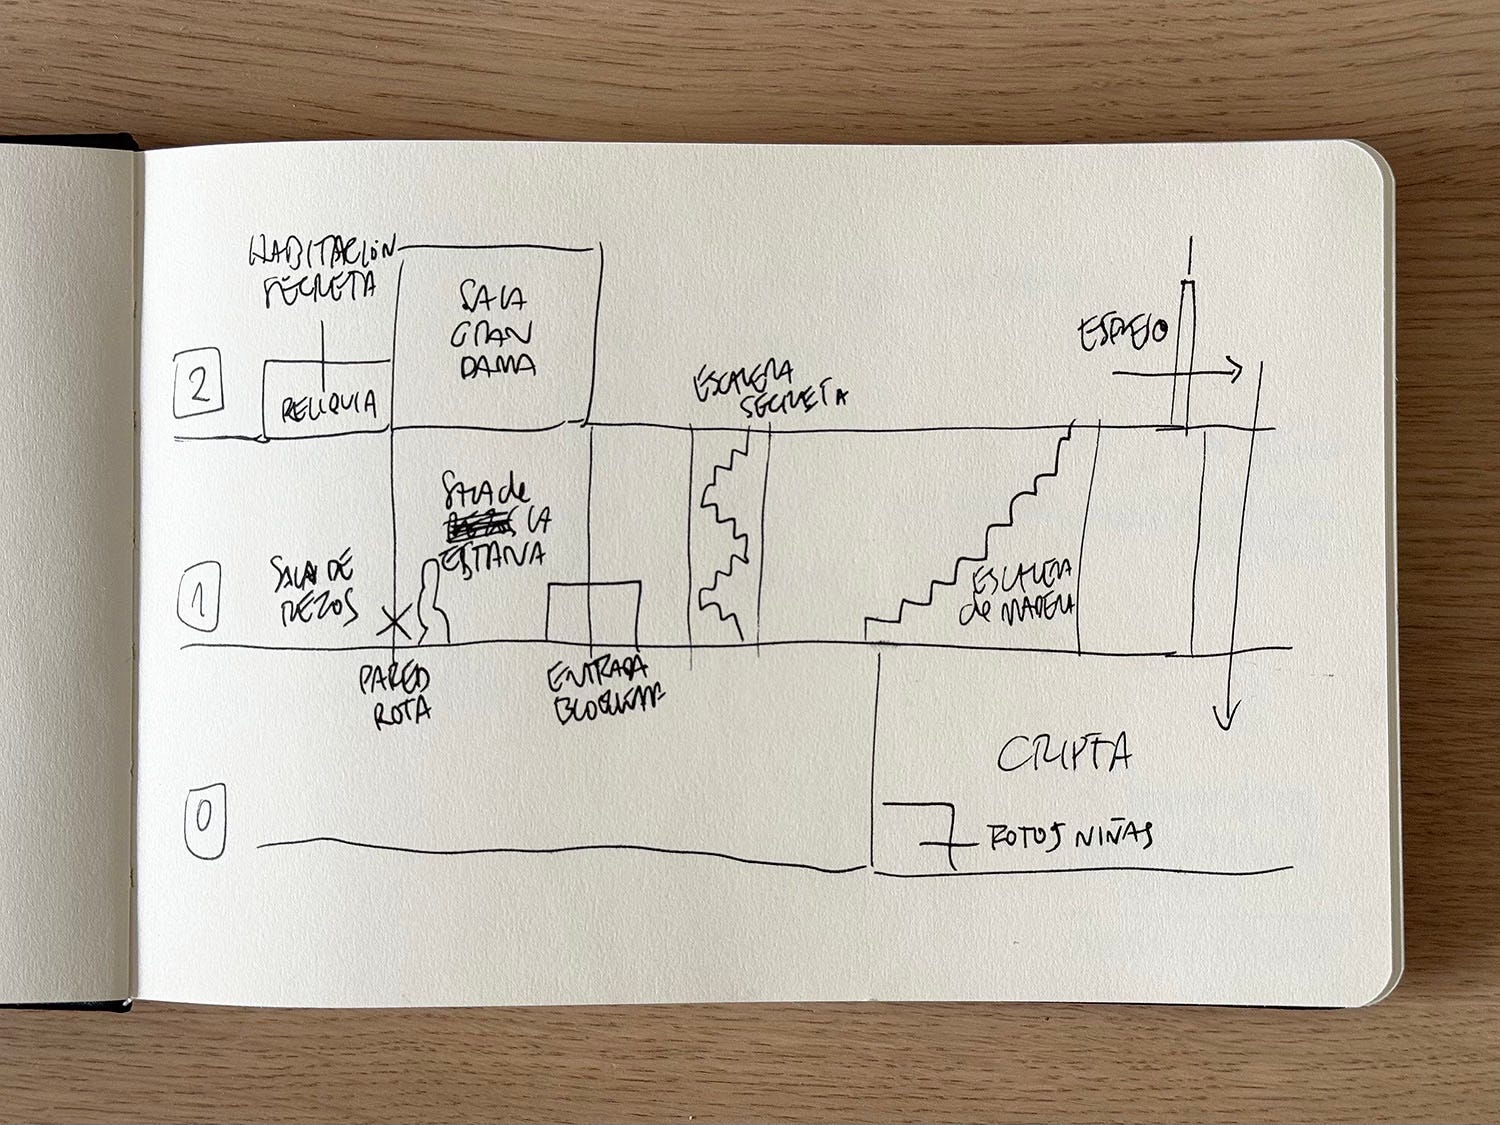 HABITACIÓN
SECRETA
2
RELIQUIA
SALA
GRAN
DAMA
ESCALERA
SECRETA
ESPEJO
1
SALA DE
REZOS
SALA de
LA
ESTATUA
ESCALERA
de MADERA
PARED
ROTA
ENTRADA
0
CRIPTA
FOTOS NIÑAS